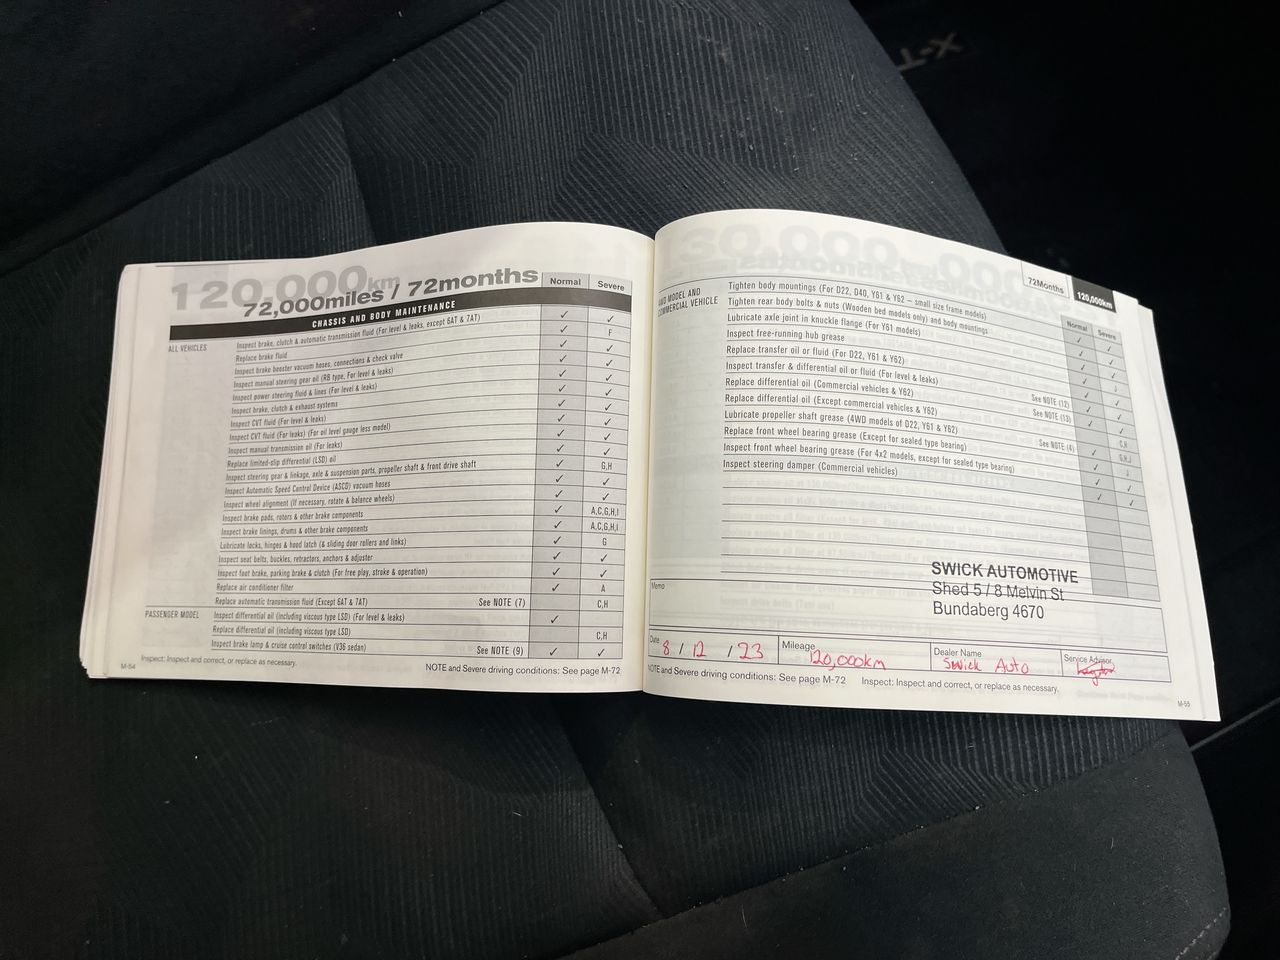 120,000km
72,000miles / 72months
Normal
Severe
CHASSIS AND BODY MAINTENANCE
ALL VEHICLES
Inspect brake, clutch & automatic transmission fluid (For level & leaks, except 6AT & 7AT) ✓ ✓
Replace brake fluid ✓ F
Inspect brake booster vacuum hoses, connections & check valve ✓ ✓
Inspect manual steering gear oil (RB type, For level & leaks) ✓ ✓
Inspect power steering fluid & lines (For level & leaks) ✓ ✓
Inspect brake, clutch & exhaust systems ✓ ✓
Inspect CVT fluid (For level & leaks) ✓ ✓
Inspect CVT fluid (For leaks) (For oil level gauge less model) ✓ ✓
Inspect manual transmission oil (For leaks) ✓ ✓
Replace limited-slip differential (LSD) oil ✓ ✓
Inspect steering gear & linkage, axle & suspension parts, propeller shaft & front drive shaft ✓ G,H
Inspect Automatic Speed Control Device (ASCD) vacuum hoses ✓ ✓
Inspect wheel alignment (If necessary, rotate & balance wheels) ✓ ✓
Inspect brake pads, rotors & other brake components ✓ A,C,G,H,I
Inspect brake linings, drums & other brake components ✓ A,C,G,H,I
Lubricate locks, hinges & hood latch (& sliding door rollers and links) ✓ G
Inspect seat belts, buckles, retractors, anchors & adjuster ✓ ✓
Inspect foot brake, parking brake & clutch (For free play, stroke & operation) ✓ ✓
Replace air conditioner filter ✓ A
Replace automatic transmission fluid (Except 6AT & 7AT) See NOTE (7) C,H
PASSENGER MODEL
Inspect differential oil (including viscous type LSD) (For level & leaks) ✓
Replace differential oil (including viscous type LSD) C,H
Inspect brake lamp & cruise control switches (V36 sedan) See NOTE (9) ✓ ✓
Inspect: Inspect and correct, or replace as necessary.
NOTE and Severe driving conditions: See page M-72
M-54
72Months
120,000km
Normal
Severe
4WD MODEL AND
COMMERCIAL VEHICLE
Tighten body mountings (For D22, D40, Y61 & Y62 – small size frame models)
Tighten rear body bolts & nuts (Wooden bed models only) and body mountings
Lubricate axle joint in knuckle flange (For Y61 models)
Inspect free-running hub grease
Replace transfer oil or fluid (For D22, Y61 & Y62)
Inspect transfer & differential oil or fluid (For level & leaks)
Replace differential oil (Commercial vehicles & Y62) See NOTE (12)
Replace differential oil (Except commercial vehicles & Y62) See NOTE (13)
Lubricate propeller shaft grease (4WD models of D22, Y61 & Y62)
Replace front wheel bearing grease (Except for sealed type bearing) See NOTE (4)
Inspect front wheel bearing grease (For 4x2 models, except for sealed type bearing)
Inspect steering damper (Commercial vehicles)
SWICK AUTOMOTIVE
Shed 5 / 8 Melvin St
Bundaberg 4670
Memo
Date 8 / 12 / 23
Mileage 120,000km
Dealer Name Swick Auto
Service Advisor
NOTE and Severe driving conditions: See page M-72
Inspect: Inspect and correct, or replace as necessary.
M-55
X-T